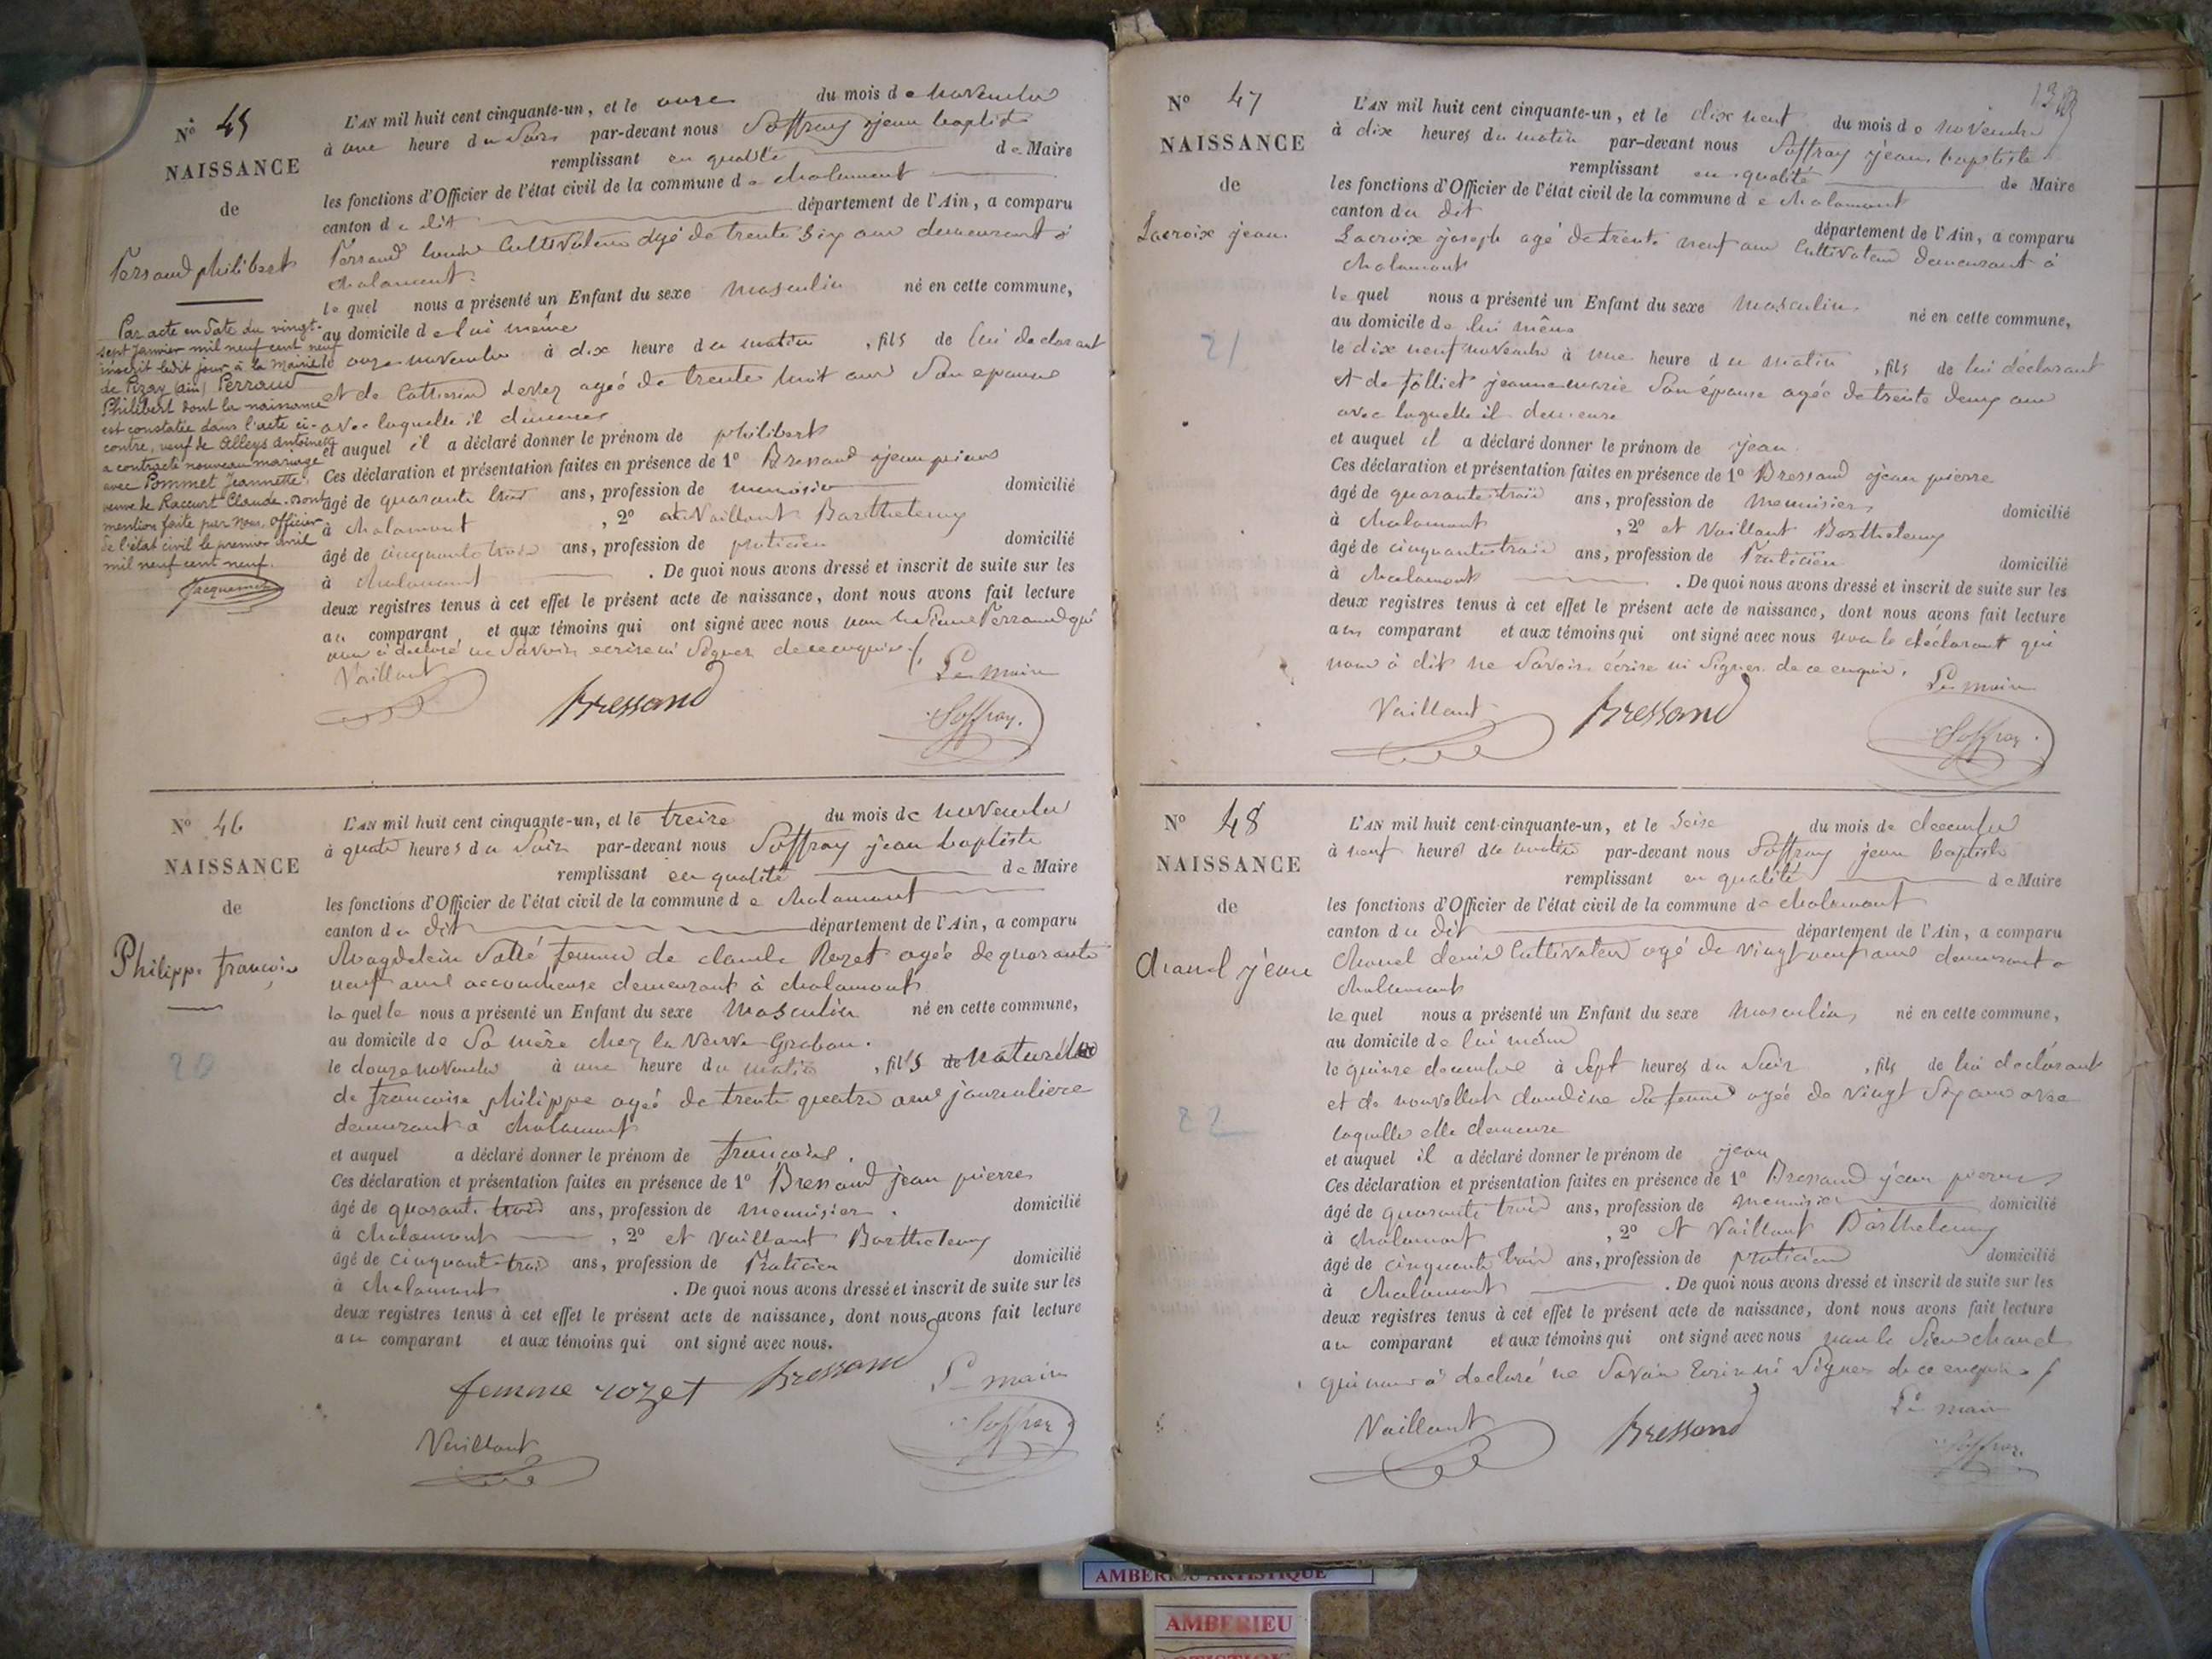 N° 45
NAISSANCE
de
Perraud philibert
Par acte en date du vingt-
sept Janvier mil neuf cent neuf
inscrit ledit jour à la Mairie
de Pizay (Ain) Perraud
Philibert dont la naissance
est constatée dans l'acte ci-
contre, veuf de Alleys Antoinette
a contracté nouveau mariage
avec Pommet Jeannette,
veuve de Raccurt Claude. Dont
mention faite par Nous, officier
de l'état civil le premier avril
mil neuf cent neuf.
Jacquemin
L'AN mil huit cent cinquante-un, et le onze du mois de novembre
à une heure du Soir par-devant nous Soffray jean baptiste
remplissant en qualité de Maire
les fonctions d'Officier de l'état civil de la commune de chalamont
canton du dit département de l'Ain, a comparu
Perraud Cultivateur agé de trente Six ans demeurant à
chalamont
le quel nous a présenté un Enfant du sexe Masculin né en cette commune,
au domicile de lui même
le onze novembre à dix heure du matin, fils de lui déclarant
et de Catherine agée de trente huit ans Son épouse
avec laquelle il demeure
et auquel il a déclaré donner le prénom de philibert
Ces déclaration et présentation faites en présence de 1° Bressand jean pierre
âgé de quarante trois ans, profession de menuisier domicilié
à chalamont, 2° et Vaillant Barthelemy
âgé de cinquante trois ans, profession de praticien domicilié
à chalamont. De quoi nous avons dressé et inscrit de suite sur les
deux registres tenus à cet effet le présent acte de naissance, dont nous avons fait lecture
au comparant, et aux témoins qui ont signé avec nous non le Sieur Perraud qui
nous à déclaré ne Savoir ecrire ni Signer de ce enquis
Vaillant Bressand Le maire
Soffray
N° 46
NAISSANCE
de
Philippe francois
20
L'AN mil huit cent cinquante-un, et le treize du mois de novembre
à quatre heures du Soir par-devant nous Soffray jean baptiste
remplissant en qualité de Maire
les fonctions d'Officier de l'état civil de la commune de chalamont
canton du dit département de l'Ain, a comparu
Magdelein Sallé femme de claude Rozet agée de quarante
neuf ans accoucheuse demeurant à chalamont
laquelle nous a présenté un Enfant du sexe Masculin né en cette commune,
au domicile de Sa mère chez la Veuve Graban.
le douze novembre à une heure du matin, fils de naturel
de francoise philippe agée de trente quatre ans journaliere
demeurant a chalamont
et auquel a déclaré donner le prénom de francois.
Ces déclaration et présentation faites en présence de 1° Bressand jean pierre
âgé de quarante trois ans, profession de menuisier. domicilié
à chalamont, 2° et Vaillant Barthelemy
âgé de cinquante trois ans, profession de Praticien domicilié
à chalamont. De quoi nous avons dressé et inscrit de suite sur les
deux registres tenus à cet effet le présent acte de naissance, dont nous avons fait lecture
au comparant et aux témoins qui ont signé avec nous.
femme rozet Bressand Le maire
Soffray
Vaillant
N° 47
NAISSANCE
de
Lacroix jean
21
L'AN mil huit cent cinquante-un, et le dix neuf du mois de novembre
à dix heures du matin par-devant nous Soffray jean baptiste
remplissant en qualité de Maire
les fonctions d'Officier de l'état civil de la commune de chalamont
canton du dit département de l'Ain, a comparu
Lacroix joseph agé de trente neuf ans Cultivateur demeurant à
chalamont
le quel nous a présenté un Enfant du sexe Masculin né en cette commune,
au domicile de lui même
le dix neuf novembre à une heure du matin, fils de lui déclarant
et de folliet jeanne marie Son épouse agée de trente deux ans
avec laquelle il demeure
et auquel il a déclaré donner le prénom de jean
Ces déclaration et présentation faites en présence de 1° Bressand jean pierre
âgé de quarante trois ans, profession de Menuisier domicilié
à chalamont, 2° et Vaillant Barthelemy
âgé de cinquante trois ans, profession de Praticien domicilié
à chalamont. De quoi nous avons dressé et inscrit de suite sur les
deux registres tenus à cet effet le présent acte de naissance, dont nous avons fait lecture
au comparant et aux témoins qui ont signé avec nous non le déclarant qui
nous à dit ne Savoir écrire ni Signer de ce enquis.
Vaillant Bressand Le maire
Soffray
N° 48
NAISSANCE
de
chanel jean
22
L'AN mil huit cent cinquante-un, et le Seise du mois de decembre
à neuf heures du matin par-devant nous Soffray jean baptiste
remplissant en qualité de Maire
les fonctions d'Officier de l'état civil de la commune de chalamont
canton du dit département de l'Ain, a comparu
chanel denis Cultivateur agé de vingt neuf ans demeurant a
chalamont
le quel nous a présenté un Enfant du sexe Masculin né en cette commune,
au domicile de lui même
le quinze decembre à Sept heures du Soir, fils de lui déclarant
et de nouvellet claudine Sa femme agée de vingt Six ans avec
laquelle elle demeure
et auquel il a déclaré donner le prénom de jean
Ces déclaration et présentation faites en présence de 1° Bressand jean pierre
âgé de quarante trois ans, profession de menuisier domicilié
à chalamont, 2° et Vaillant Barthelemy
âgé de cinquante trois ans, profession de praticien domicilié
à chalamont. De quoi nous avons dressé et inscrit de suite sur les
deux registres tenus à cet effet le présent acte de naissance, dont nous avons fait lecture
au comparant et aux témoins qui ont signé avec nous non le Sieur chanel
qui nous a déclaré ne Savoir Ecrire ni Signer de ce enquis
Vaillant Bressand Le maire
Soffray
AMBERIEU ARTISTIQUE
AMBERIEU